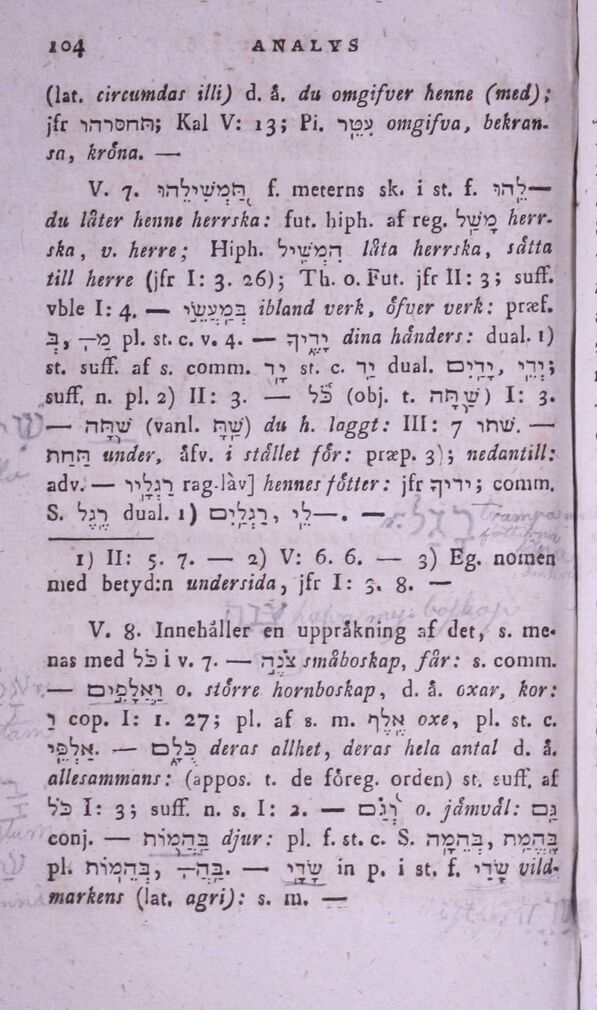 104 ANALYS
(lat. circumdas illi) d. å. du omgifver henne (med);
jfr תחסרהו; Kal V: 13; Pi. עִטֵּר omgifva, bekran-
sa, krôna. —
V. 7. תַּמְשִׁילֵהוּ f. meterns sk. i st. f. לֵהוּ—
du låter henne herrska: fut. hiph. af reg. מָשַׁל herr-
ska, v. herre; Hiph. הִמְשִׁיל låta herrska, såtta
till herre (jfr I: 3. 26); Th. o. Fut. jfr II: 3; suff.
vble I: 4. — בְּמַעֲשֵׂי ibland verk, öfver verk: præf.
בְּ, מַ— pl. st. c. v. 4. — יָדֶיךָ dina hånders: dual. 1)
st. suff. af s. comm. יָד st. c. יַד dual. יָדַיִם, יְדֵי;
suff. n. pl. 2) II: 3. — כֹּל (obj. t. שַׁתָּה) I: 3.
— שַׁתָּה (vanl. שַׁתָּ) du h. laggt: III: 7 שתו. —
תַּחַת under, åfv. i stållet för: præp. 3); nedantill:
adv. — רַגְלָיו rag-làv] hennes fötter: jfr ידיך; comm.
S. רֶגֶל dual. 1) רַגְלַיִם, לֵי—. —
1) II: 5. 7. — 2) V: 6. 6. — 3) Eg. nomen
med betyd:n undersida, jfr I: 3. 8. —
V. 8. Innehåller en uppråkning af det, s. me-
nas med כֹּל i v. 7. — צֹנֶה småboskap, får: s. comm.
— וַאֲלָפִים o. större hornboskap, d. å. oxar, kor:
וַ cop. I: 1. 27; pl. af s. m. אֶלֶף oxe, pl. st. c.
אַלְפֵי. — כֻּלָּם deras allhet, deras hela antal d. å.
allesammans: (appos. t. de föreg. orden) st. suff. af
כֹּל I: 3; suff. n. s. I: 2. — וְגַם o. jåmvål: גַּם
conj. — בַּהֲמוֹת djur: pl. f. st. c. S. בְּהֵמָה, בֶּהֱמַת
pl. בְּהֵמוֹת, בַּהֲ—. — שָׂדָי in p. i st. f. שָׂדַי vild-
markens (lat. agri): s. m. —